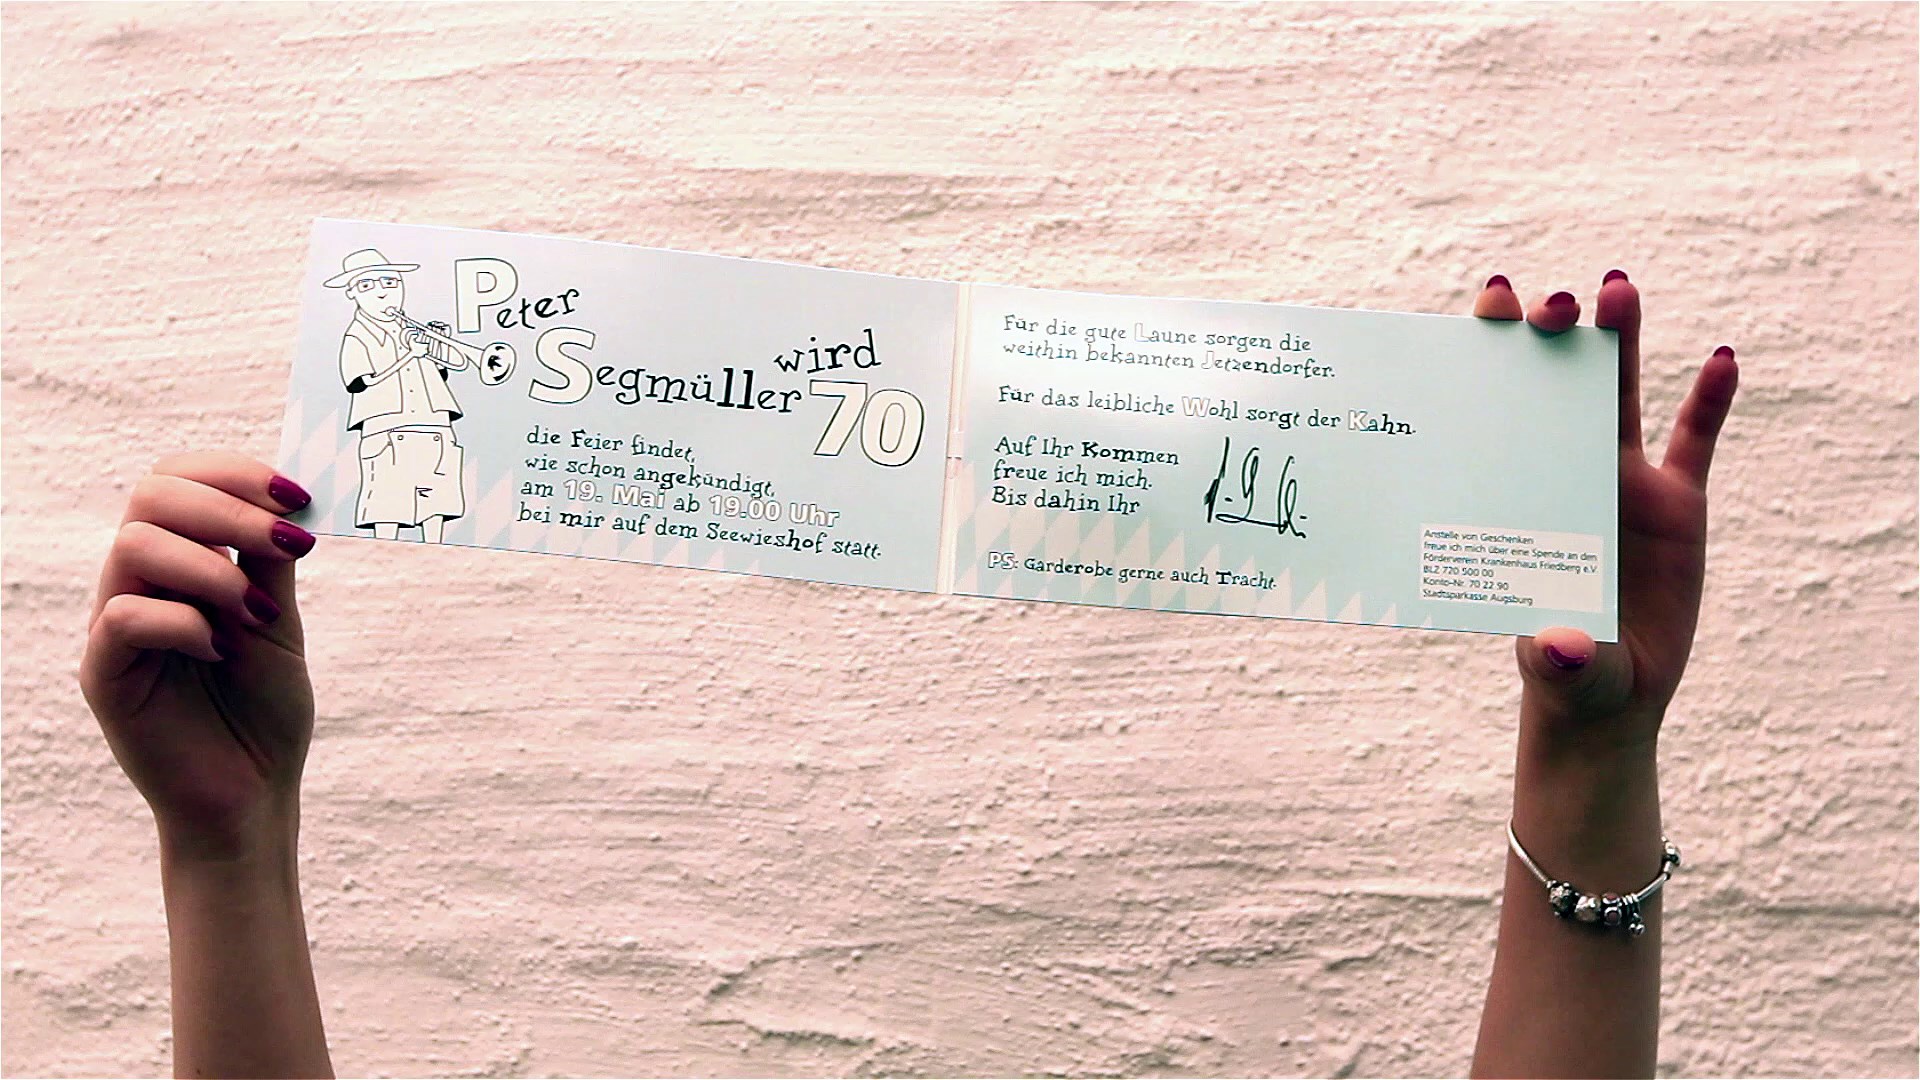 Peter
Segmüller wird 70
die Feier findet,
wie schon angekündigt,
am 19. Mai ab 19.00 Uhr
bei mir auf dem Seewieshof statt.
Für die gute Laune sorgen die
weithin bekannten Jetzendorfer.
Für das leibliche Wohl sorgt der Kahn.
Auf Ihr Kommen
freue ich mich.
Bis dahin Ihr
PS: Garderobe gerne auch Tracht.
Anstelle von Geschenken
freue ich mich über eine Spende an den
Förderverein Krankenhaus Friedberg e.V.
BLZ 720 500 00
Konto-Nr. 70 22 90
Stadtsparkasse Augsburg